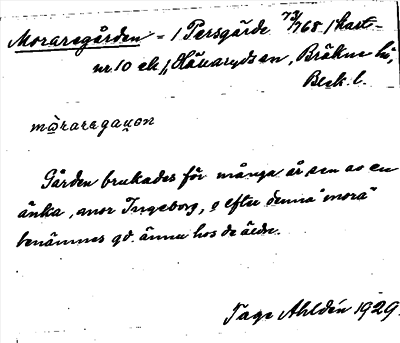 Moraregården = 1 Persgärde 73/768 / kart-
nr 10 ek /, Hällaryds sn, Bräkne hd,
Blek. l.
mòraregaṇon
Gården brukades för många år sen av en
änka, mor Ingeborg, o efter denna "mora"
benämnes gd. ännu hos de äldre.
Tage Ahldén 1929.